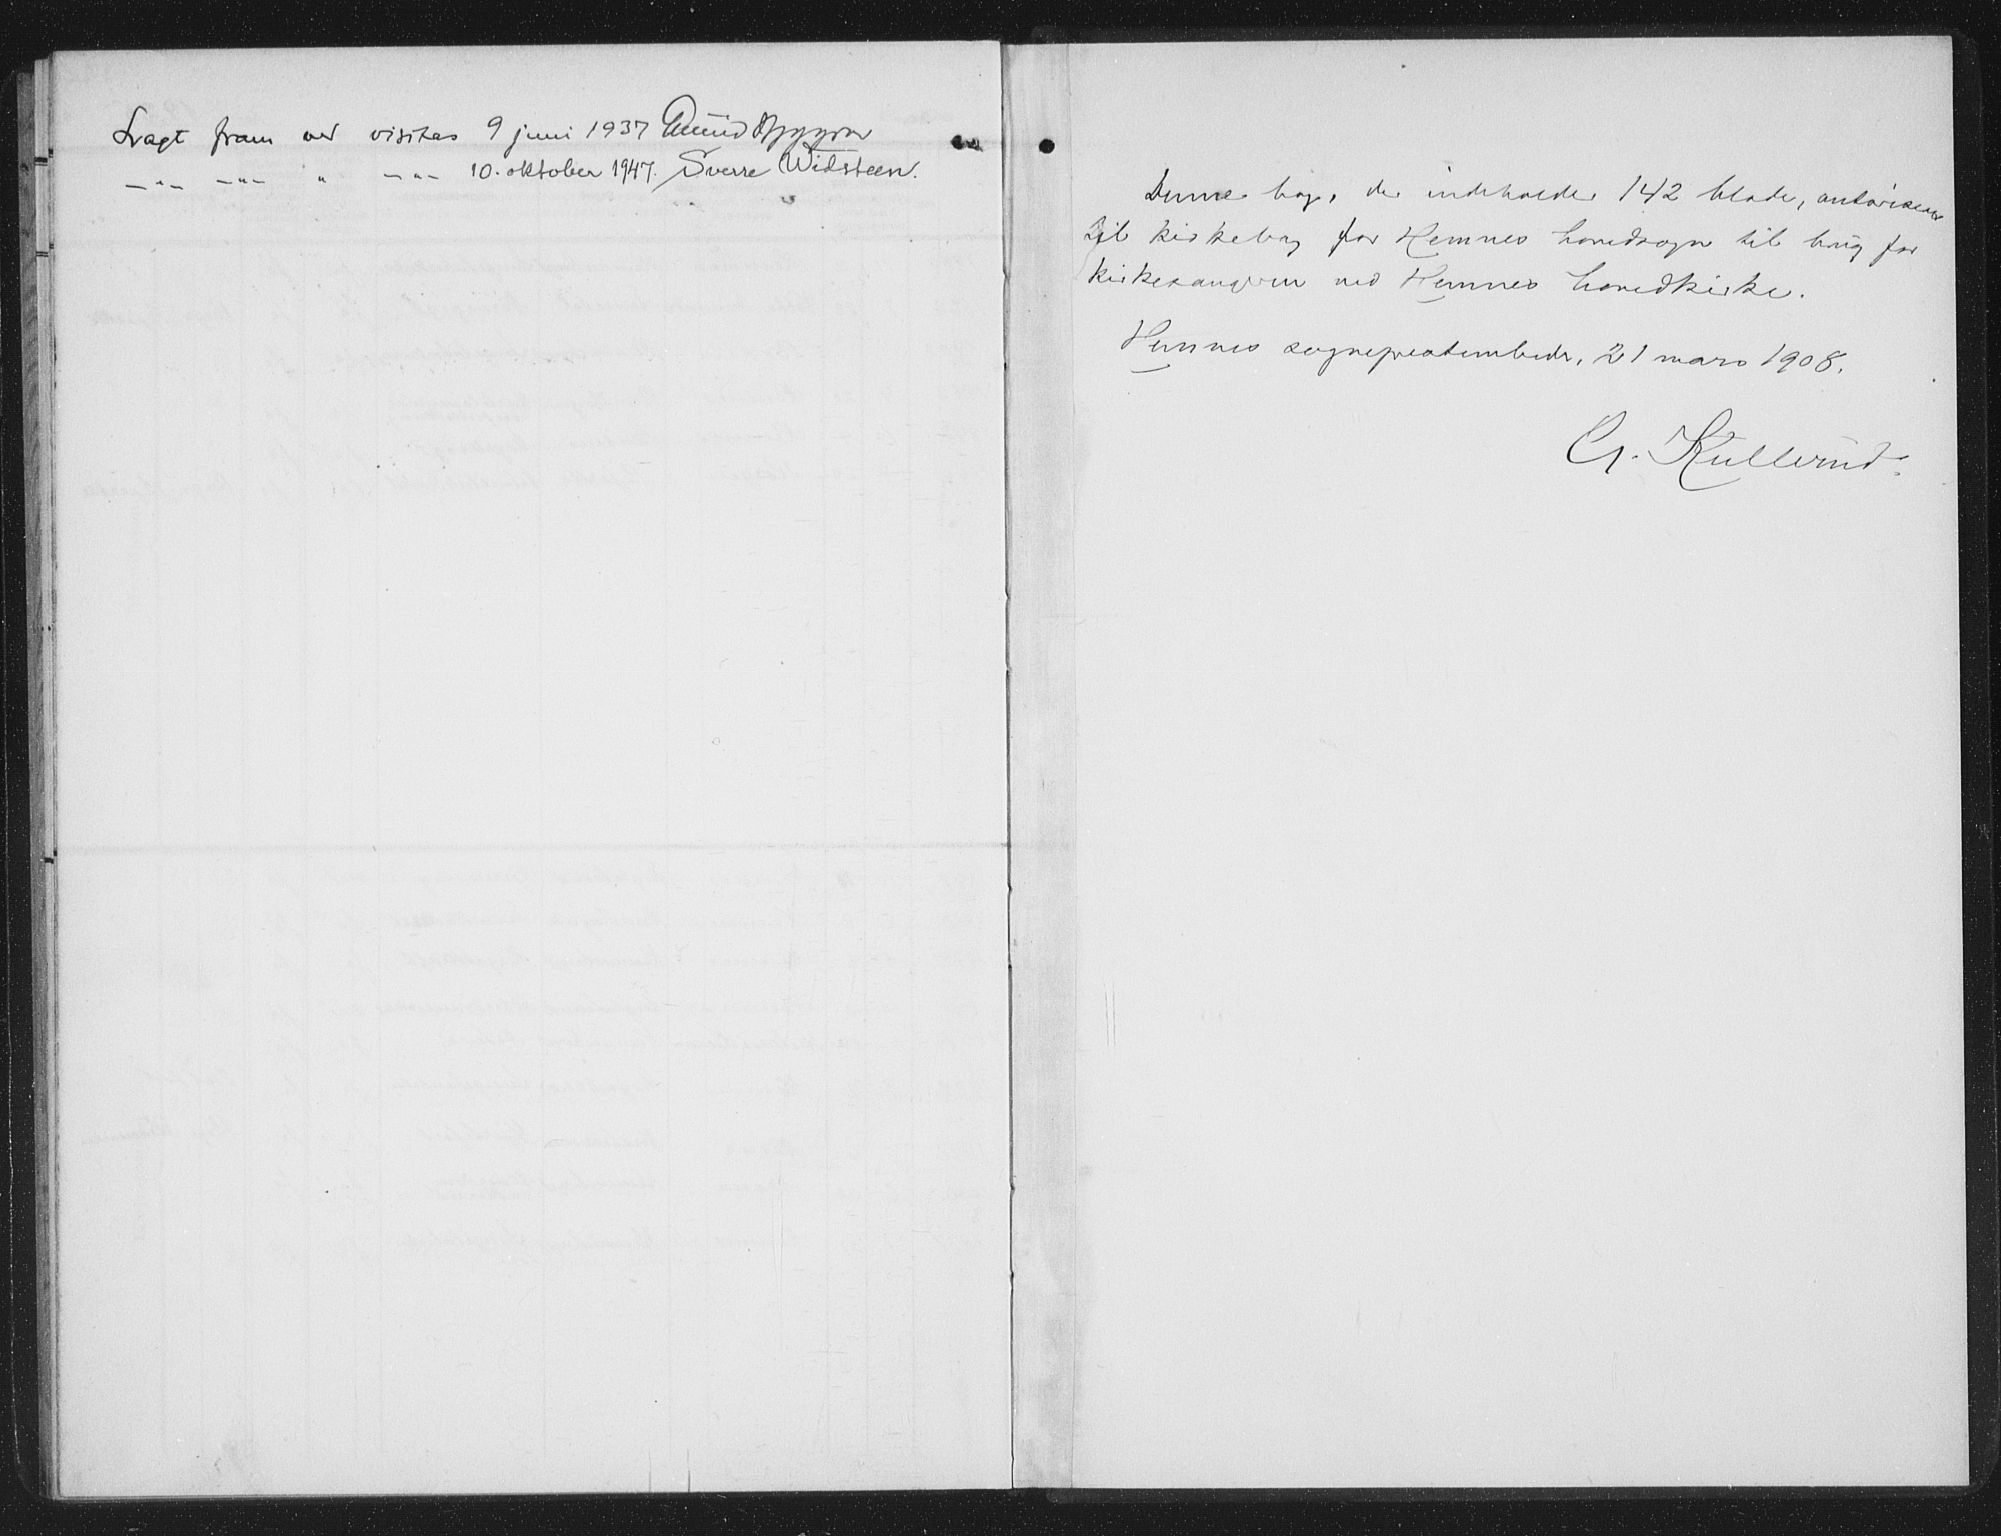 Lagt fram ved visitas 9 juni 1937
—„— —„— „ —„— 10. oktober 1947. Sverre Widsteen.
Denne bog, der indeholder 142 blade, autoriseres
til kirkebog for Hemnes hovedsogn til brug for
kirkesangeren ved Hemnes hovedkirke.
Hemnes sogneprestembede, 21 mars 1908.
Kullerud.